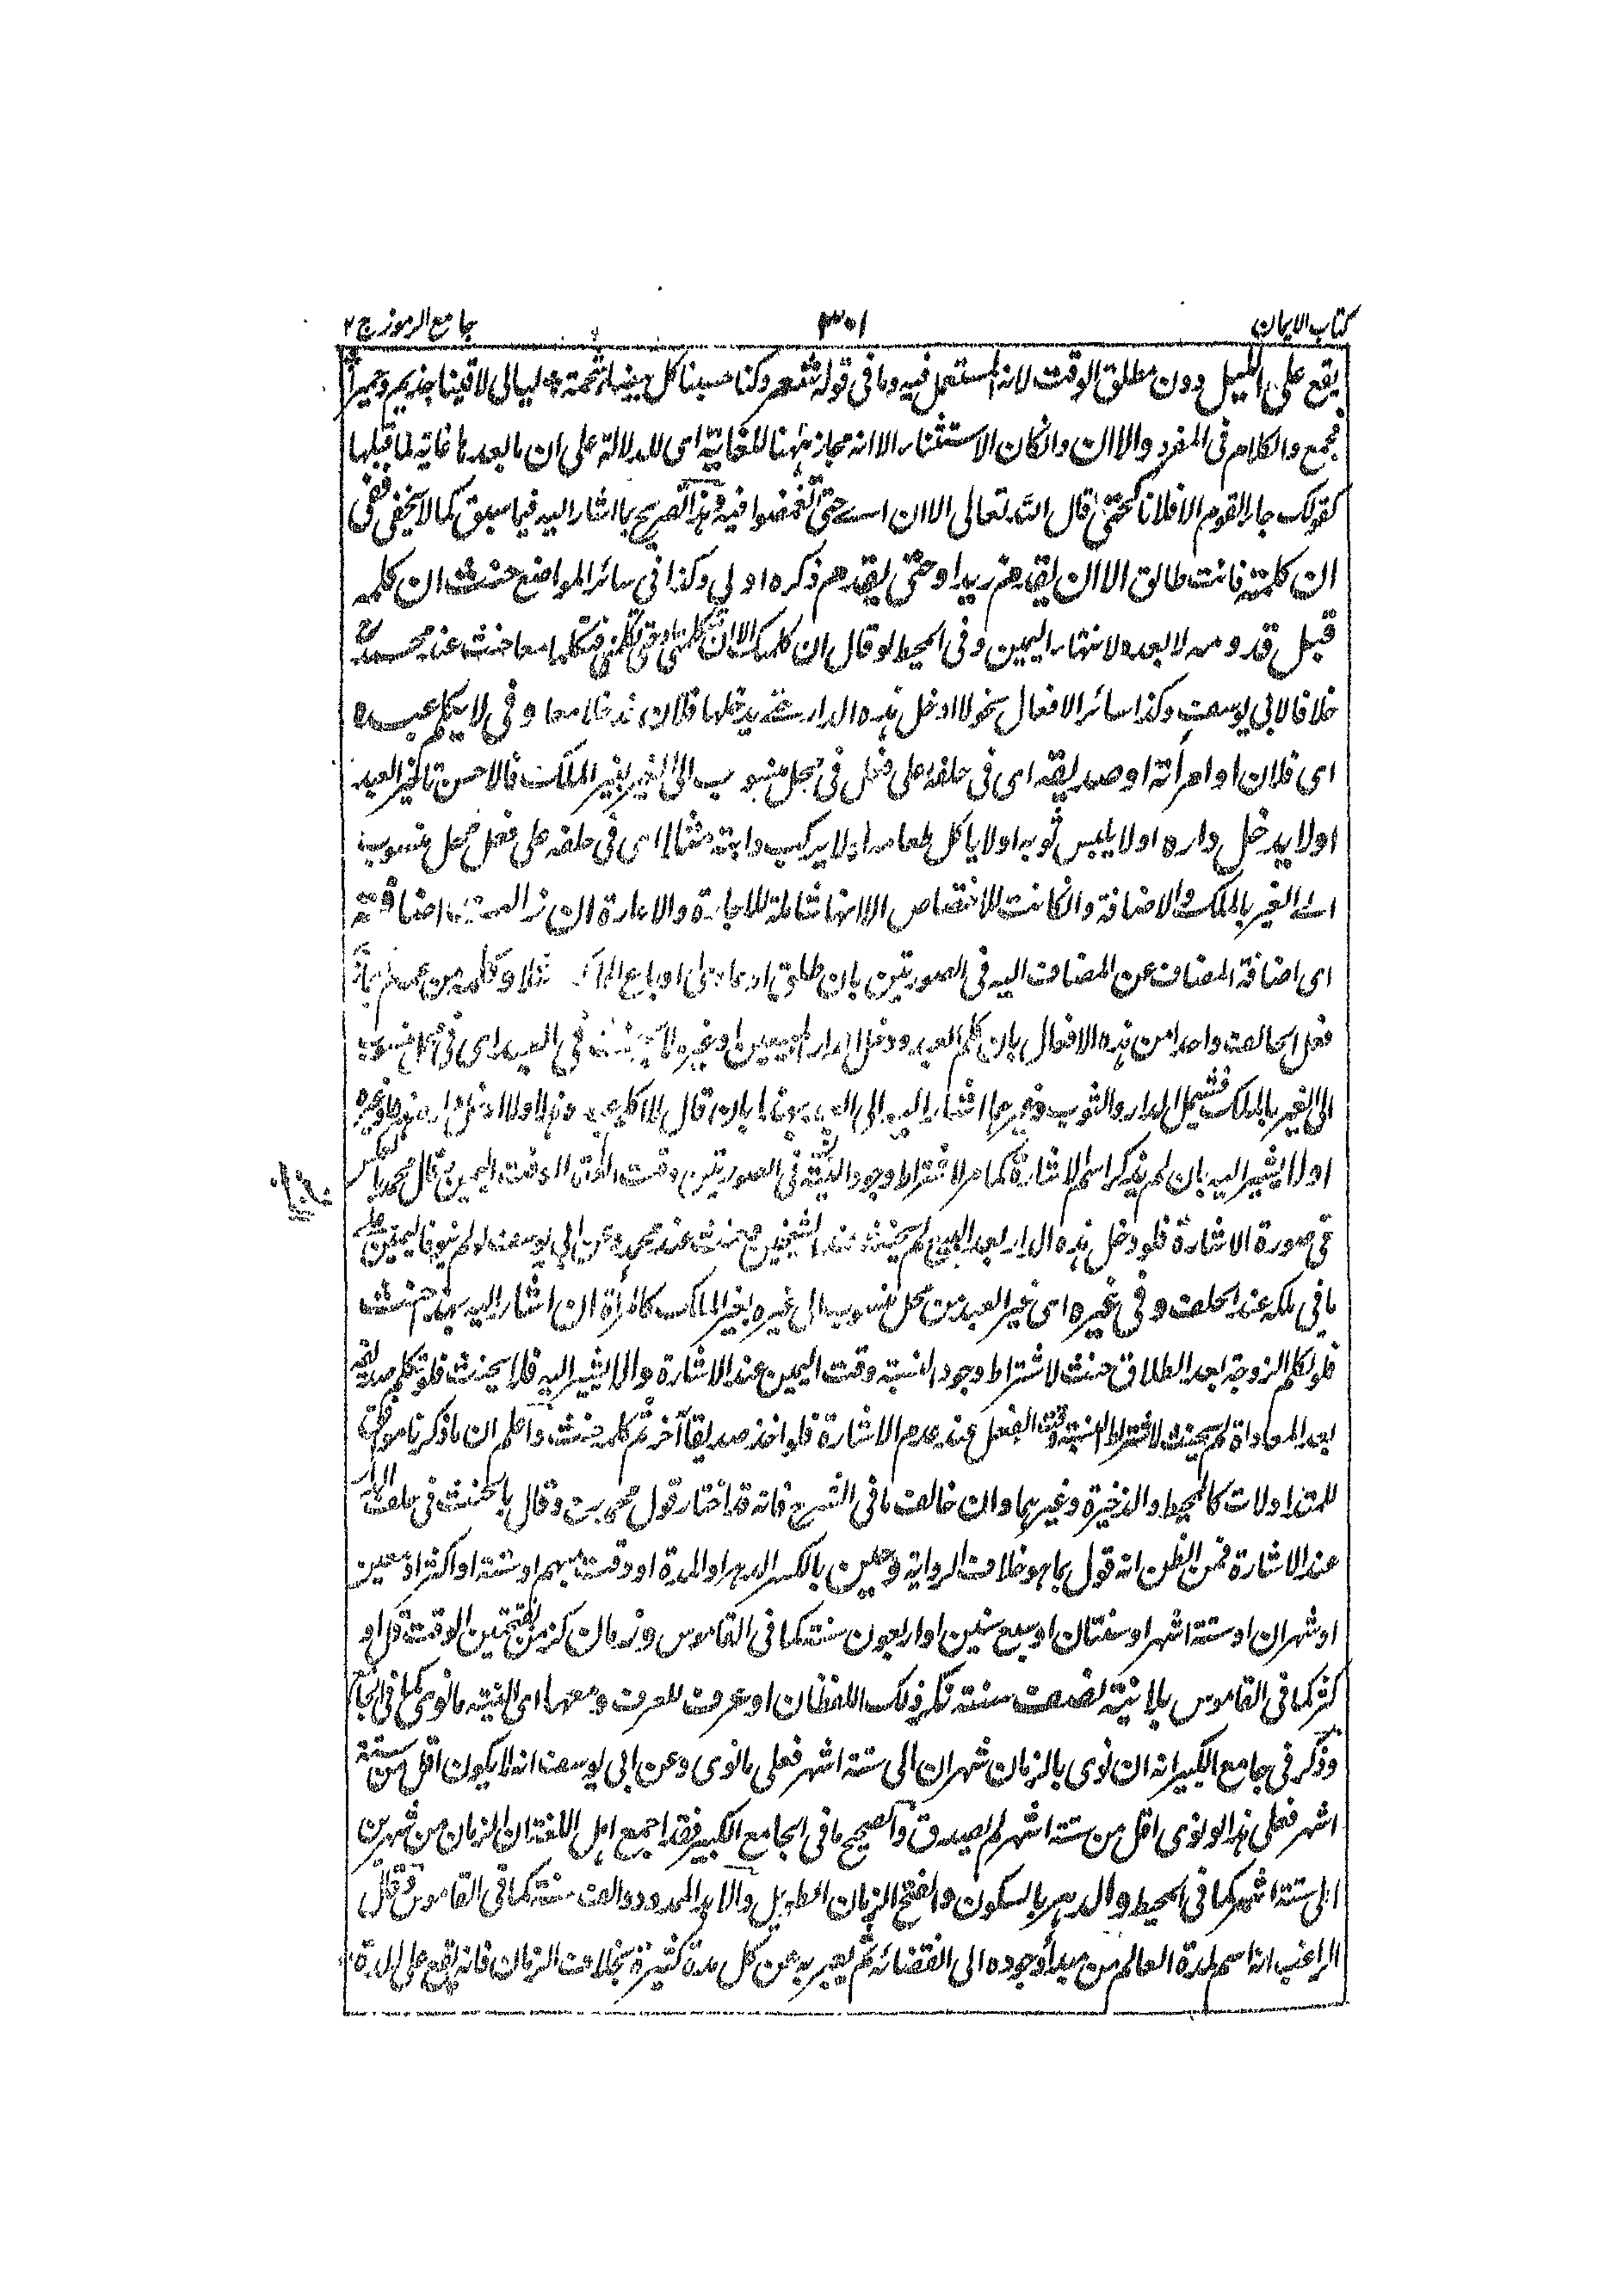 كتاب الايمان ٣٠١ جامع الرموز ج ٢
يقع على الليل دون مطلق الوقت لانه المستعمل فيه وما فى قوله شعر وكنا حسبنا كل بيضاء شحمة * ليالى لاقينا جذيم وحميرا
فجمع والكلام فى المفرد والا ان وان كان الاستثناء الا انه مجاز ههنا للغاية اى للدلالة على ان ما بعدها غاية لما قبلها
كقولك جاء القوم الا فلانا كحتى قال الله تعالى الا ان اى حتى تغمضوا فيه وهذا تصريح بما اشار اليه فيما سبق كما لا يخفى ففى
ان كلمته فانت طالق الا ان يقدم زيد او حتى يقدم ذكره اولى وكذا فى سائر المواضع حنث ان كلمه
قبل قدومه لا بعده لانتهاء اليمين وفى المحيط لو قال ان كلمتك الا ان تكلمنى او حتى تكلمنى فتكلما معا حنث عند محمد
خلافا لابى يوسف وكذا سائر الافعال نحو لا ادخل هذه الدار حتى يدخلها فلان فدخلا معا وفى لا يكلم عبده
اى فلان او امرأته او صديقه اى فى حلفه على فعل فى محل منسوب الى الغير بغير الملك فالاحسن تاخير العبد
او لا يدخل داره او لا يلبس ثوبه او لا ياكل طعامه او لا يركب دابته مثلا اى فى حلفه على فعل محل منسوب
الى الغير بالملك والاضافة وان كانت للاختصاص الا انها شاملة للاجارة والاعارة ان زالت اضافته
اى اضافة المضاف عن المضاف اليه فى الصورتين بان طلق او عادى او باع
فعل الحالف واحدا من هذه الافعال بان كلم العبد ودخل الدار لا يحنث فى العبد اى فى منسوب
الى الغير بالملك فتشمل الدار والثوب وغيرهما اشار اليه بان قال لا اكلم
او لا يشير اليه بان لم يذكر اسم الاشارة كما مر لاشتراط وجود النسبة فى الصورتين وقت اليمين قال محمد
فى صورة الاشارة فلو دخل هذه الدار بعد البيع لم يحنث عند الشيخين حنث عند محمد وعن ابى يوسف لو لم ينو فاليمين على
ما فى ملكه عند الحلف وفى غيره اى غير العبد من محل منسوب الى غيره بغير الملك كالمرأة ان اشار اليه بهذا حنث
فلو كلم الزوجة بعد الطلاق حنث لاشتراط وجود النسبة وقت اليمين عند الاشارة والا يشير اليه فلا يحنث فلو تكلم صديقه
بعد المعاداة لم يحنث لاشتراط النسبة وقت الفعل عند عدم الاشارة فلو اخذ صديقا آخر ثم كلمه حنث واعلم ان ما ذكرنا موافق
للمتداولات كالمحيط والذخيرة وغيرهما وان خالف ما فى الشرح فانه قد اختار قول محمد وقال بالحنث فى حلف الدار
عند الاشارة فمن الظن انه قول بما هو خلاف الرواية وحين بالكسر الدهر او المدة او وقت مبهم او سنة او اكثر او معين
او شهران او ستة اشهر او سنتان او سبع سنين او اربعون سنة كما فى القاموس وزمان كزمن بفتحتين الوقت قل او
كثر كما فى القاموس بلا نية نصف سنة نكر ذلك اللفظان او عرف للعرف ومعها اى النية ما نوى كما فى
وذكر فى جامع الكبير انه ان نوى بالزمان شهران الى ستة اشهر فعلى ما نوى وعن ابى يوسف انه لا يكون اقل من ستة
اشهر فعلى هذا لو نوى اقل من ستة اشهر لم يصدق والصحيح ما فى الجامع الكبير فقد اجمع اهل اللغة ان الزمان من شهرين
الى ستة اشهر كما فى المحيط والدهر بالسكون والفتح الزمان الطويل والابد الممدود والف سنة كما فى القاموس وقال
الراغب انه اسم لمدة العالم من مبدأ وجوده الى انقضائه ثم يعبر به عن كل مدة كثيرة بخلاف الزمان فانه يقع على المدة